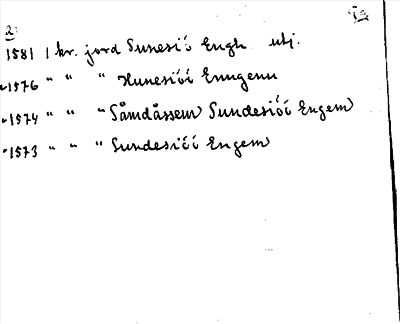 2.
1581 1 kr. jord Sunesiö Engh utj.
"1576 " " " Hunesiöö Enngenn
"1574 " " " Såmdåssem Sundesiöö Engem
"1573 " " " Sundesiöö Engem